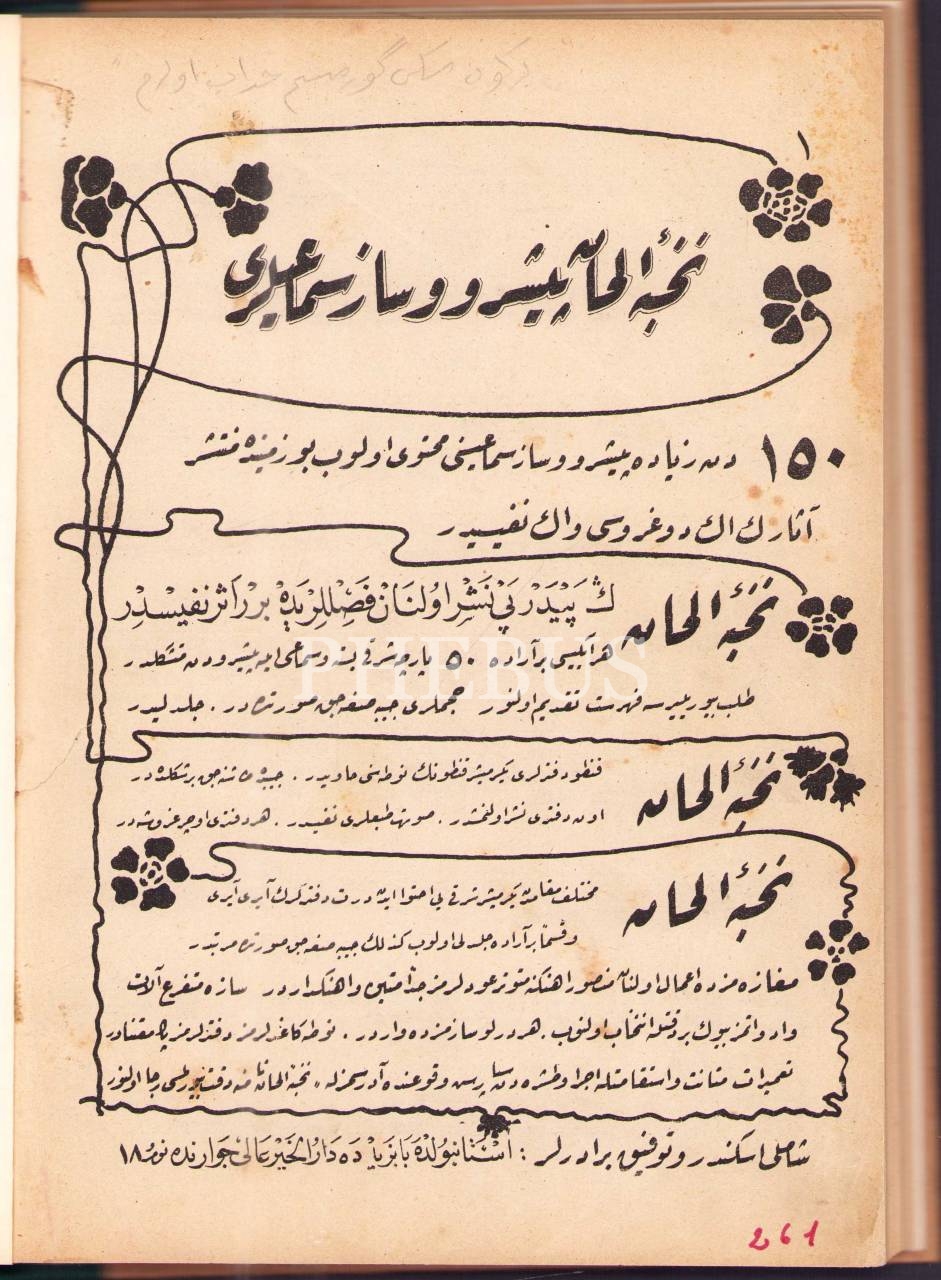 ١
نخبۀ الحان پیشرو و ساز سماعیلری
١٥٠ دن زیاده پیشرو و ساز سماعیسنی محتوی اولوب بو زمینده منتشر
آثارك اك دوغروسی و اك نفیسیدر
نخبۀ الحان ك پیدرپی نشر اولنان فصللریده بر اثر نفیسدر
هر آیلیسی بر آراده ٥٠ پارچه شرقی بسته و سماعی ایله پیشرودن متشکلدر
طلب بیوریلیرسه فهرست تقدیم اولنور حجملری جیبه صیغه‌جق صورتده‌در . جلدلیدر
PHEBUS
نخبۀ الحان
قنطو دفترلری یکرمیشر قنطونك نوطه‌سنی حاویدر . جیبده طاشنه‌جق بر شکلده‌در
اون دفتری نشر اولنمشدر . صوڭ طبعلری نفیسدر . هر دفتری اوچر غروشه‌در
نخبۀ الحان
مختلف مقامدن یکرمیشر شرقی‌یی احتوا ایدن درت دفتر كرك آیری آیری
و قسماً بر آراده جلدلی اولوب کذلك جیبه صیغه‌جق صورتده مرتبدر
مغازه‌مزده اعمال اولنان منصور آهنکنه متوتر عودلرمز جداً متین و آهنکداردر سازه متفرع آلات
و ادواتمز بیوك بر دقتله انتخاب اولنوب . هر درلو ساز مزده واردر . نوطه کاغدلرمز دفترلرمز پك مقتناد‌ر
تعمیرات متانت و استقامتله اجرا و طشره‌دن سپارش وقوعنده آدرسمزله ، نخبۀ الحان نامنه دقت بیورلمسی رجا اولنور
شاملی اسکندر و توفیق برادرلر : استانبولده بایزیدده دار الخیر عالی جوارنده نومرو ١٨
261